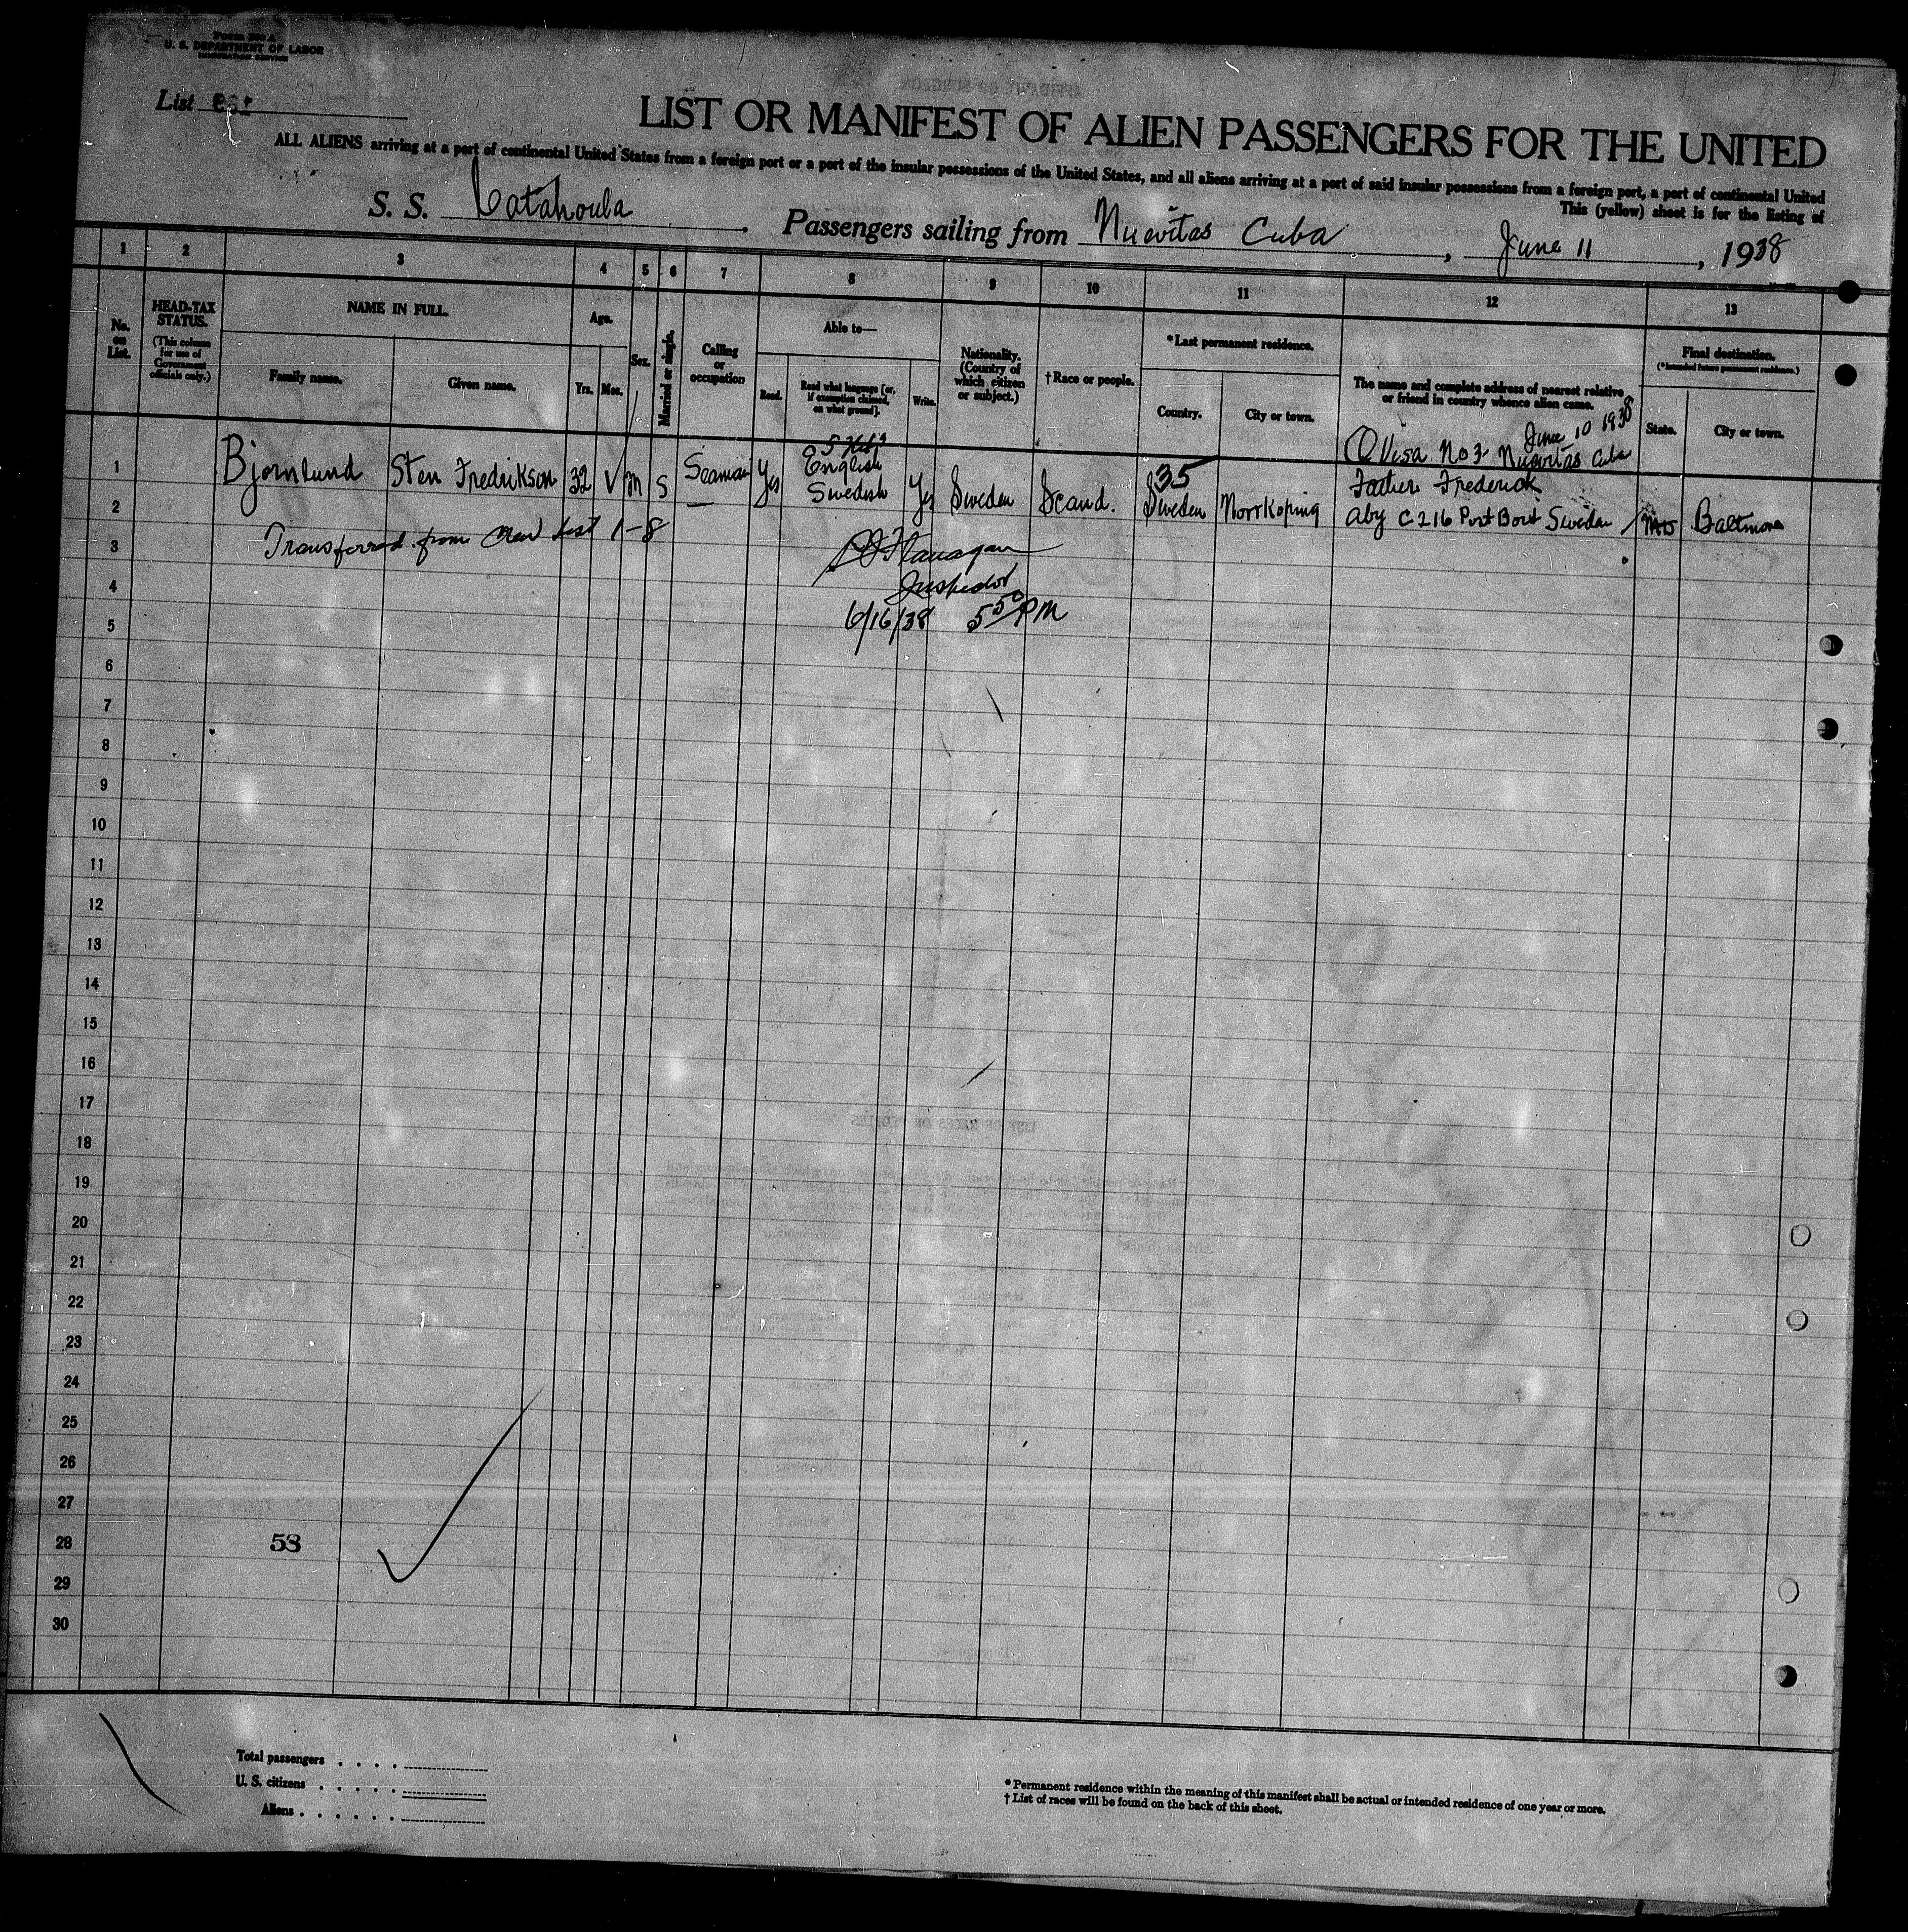 U. S. DEPARTMENT OF LABOR
IMMIGRATION SERVICE
List
LIST OR MANIFEST OF ALIEN PASSENGERS FOR THE UNITED
ALL ALIENS arriving at a port of continental United States from a foreign port or a port of the insular possessions of the United States, and all aliens arriving at a port of said insular possessions from a foreign port, a port of continental United
This (yellow) sheet is for the listing of
S. S. Catahoula. Passengers sailing from Nuevitas Cuba, June 11, 1938
1 2 3 4 5 6 7 8 9 10 11 12 13
No. on List.
HEAD-TAX STATUS.
(This column for use of Government officials only.)
NAME IN FULL.
Family name.
Given name.
Age.
Yrs. Mos.
Sex.
Married or single.
Calling or occupation
Able to—
Read.
Read what language [or, if exemption claimed, on what ground].
Write.
Nationality. (Country of which citizen or subject.)
† Race or people.
* Last permanent residence.
Country.
City or town.
The name and complete address of nearest relative or friend in country whence alien came.
Final destination.
(* Intended future permanent residence.)
State.
City or town.
June 10 1938
Visa No 3 Nuevitas Cuba
1 Bjornlund Sten Fredrikson 32 m S Seaman Yes English Swedish Yes Sweden Scand. 35 Sweden Norrkoping Father Frederick
2 aby C 216 Post Bout Sweden Baltimore
3 Transferred from Crew List 1-8
Flanagan
4 Inspector
5 6/16/38 5 50 PM
6
7
8
9
10
11
12
13
14
15
16
17
18
19
20
21
22
23
24
25
26
27
28 58
29
30
Total passengers
U. S. citizens
Aliens
* Permanent residence within the meaning of this manifest shall be actual or intended residence of one year or more.
† List of races will be found on the back of this sheet.